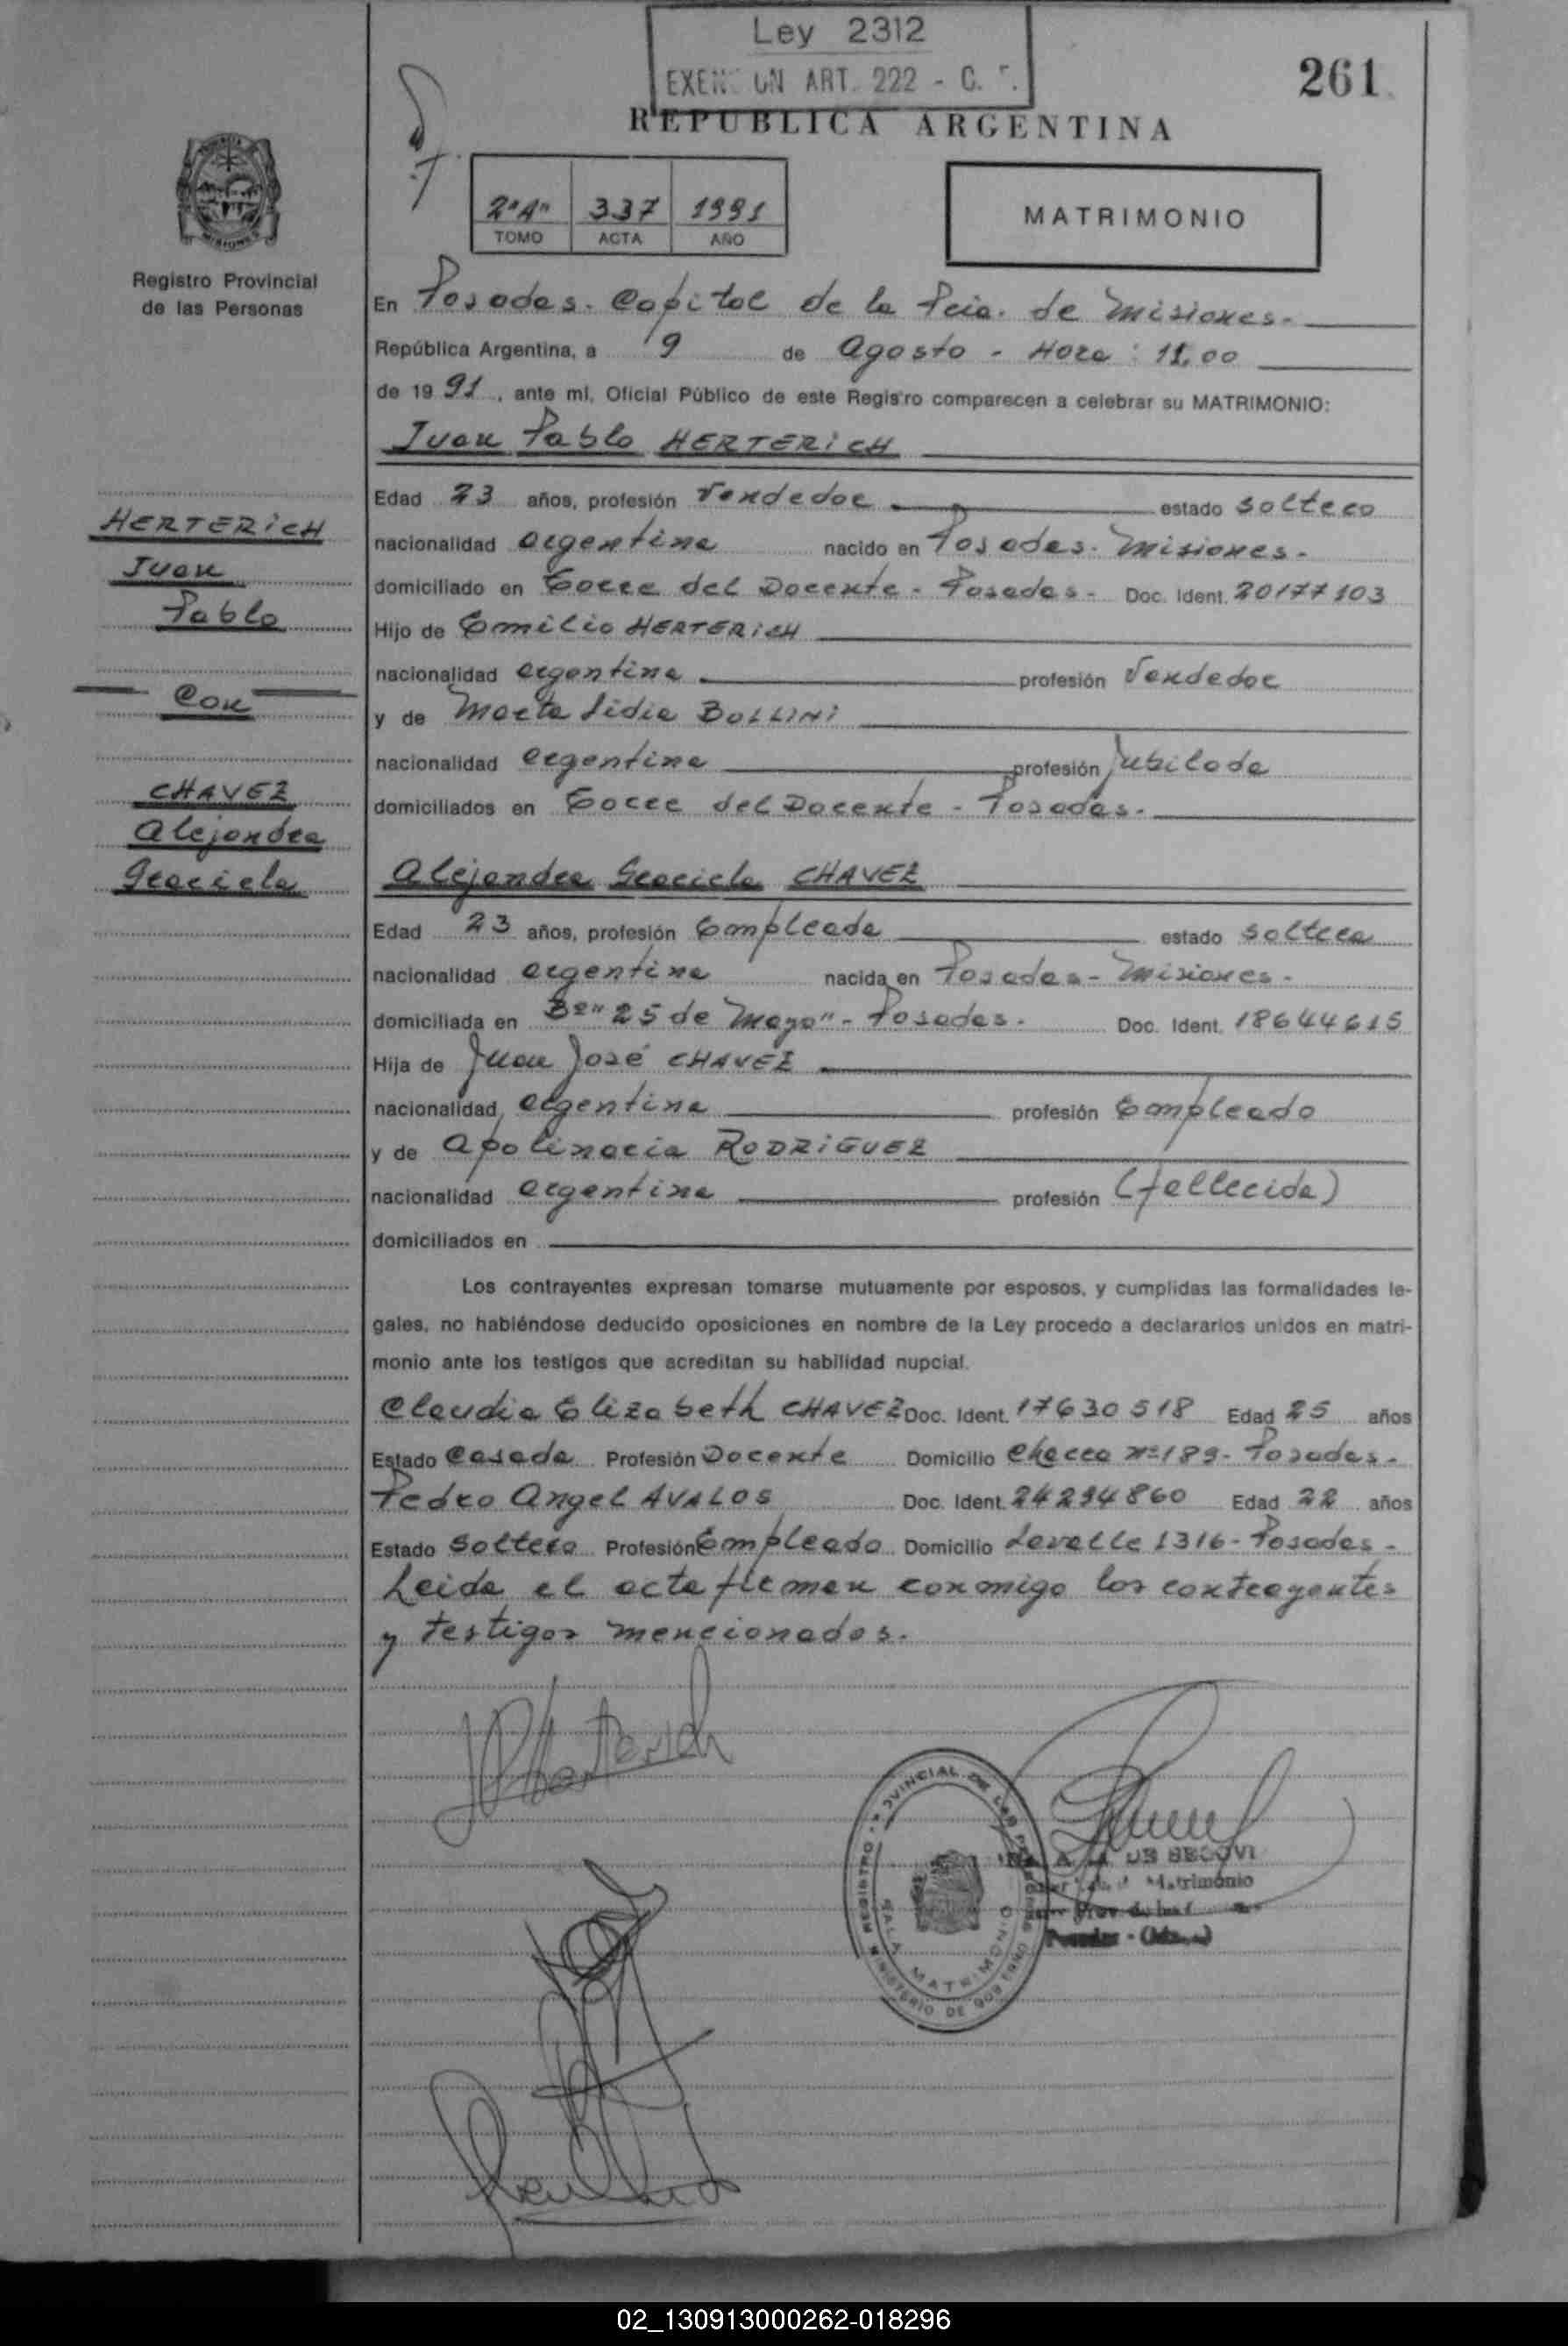 Ley 2312
ART. 222 -
261
REPUBLICA ARGENTINA
2"A" 337 1991
TOMO ACTA AÑO
MATRIMONIO
MISIONES
Registro Provincial
de las Personas
En Posadas. Capital de la Pcia. de Misiones.-
República Argentina, a 9 de Agosto - Hora: 11,00
de 1991, ante mi, Oficial Público de este Registro comparecen a celebrar su MATRIMONIO:
Juan Pablo HERTERiCH
Edad 23 años, profesión Vendedor estado soltero
nacionalidad argentina nacido en Posadas. Misiones.-
domiciliado en Torre del Docente - Posadas - Doc. Ident. 20177103
Hijo de Emilio HERTERiCH
nacionalidad argentina profesión Vendedor
y de Marta Lidia BOLLINi
nacionalidad argentina profesión Jubilada
domiciliados en Torre del Docente - Posadas.
HERTERiCH
Juan
Pablo
Con
CHAVEZ
Alejandra
Graciela
Alejandra Graciela CHAVEZ
Edad 23 años, profesión Empleada estado soltera
nacionalidad argentina nacida en Posadas - Misiones -
domiciliada en Bº "25 de Mayo" - Posadas. Doc. Ident. 18644615
Hija de Juan José CHAVEZ
nacionalidad argentina profesión Empleado
y de Apolinaria RODRiGUEZ
nacionalidad argentina profesión (fallecida)
domiciliados en
Los contrayentes expresan tomarse mutuamente por esposos, y cumplidas las formalidades le-
gales, no habiéndose deducido oposiciones en nombre de la Ley procedo a declararlos unidos en matri-
monio ante los testigos que acreditan su habilidad nupcial.
Claudia Elizabeth CHAVEZ Doc. Ident. 17630518 Edad 25 años
Estado Casada Profesión Docente Domicilio Chacco nº 189 - Posadas -
Pedro Angel AVALOS Doc. Ident. 24294860 Edad 22 años
Estado Soltero Profesión Empleado Domicilio Lavalle 1316 - Posadas -
Leida el acta firman conmigo los contrayentes
y testigos mencionados.
DE SEGOVI
Matrimonio
REGISTRO PROVINCIAL DE LAS
SALA MATRIMONIO
MINISTERIO DE GOBIERNO
02_130913000262-018296